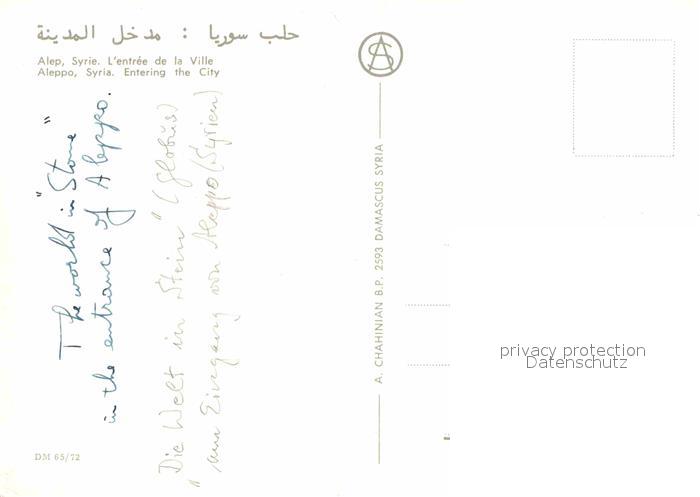 حلب سوريا : مدخل المدينة
Alep, Syrie. L'entrée de la Ville
Aleppo, Syria. Entering the City
"The world in Stone"
in the entrance of Aleppo.
"Die Welt in Stein" (Globus)
am Eingang von Aleppo (Syrien)
DM 65/72
A. CHAHINIAN B.P. 2593 DAMASCUS SYRIA
privacy protection
Datenschutz